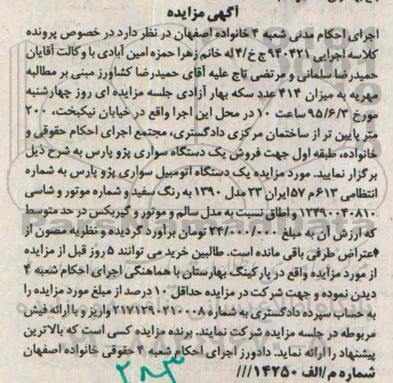 آگهی مزایده
اجرای احکام مدنی شعبه ۴ خانواده اصفهان در نظر دارد در خصوص پرونده
کلاسه اجرایی ۹۴۰۴۲۱ ج خ/۴ له خانم زهرا حمزه امین آبادی با وکالت آقایان
حمیدرضا سلمانی و مرتضی تاج علیه آقای حمیدرضا کشاورز مبنی بر مطالبه
مهریه به میزان ۴۱۴ عدد سکه بهار آزادی جلسه مزایده ای روز چهارشنبه
مورخ ۹۵/۶/۳ ساعت ۱۰ در محل این اجرا واقع در خیابان نیکبخت، ۲۰۰
متر پایین تر از ساختمان مرکزی دادگستری، مجتمع اجرای احکام حقوقی و
خانواده، طبقه اول جهت فروش یک دستگاه سواری پژو پارس به شرح ذیل
برگزار نماید. مورد مزایده یک دستگاه اتومبیل سواری پژو پارس به شماره
انتظامی ۶۱۳م۵۷ ایران ۲۳ مدل ۱۳۹۰ به رنگ سفید و شماره موتور و شاسی
۱۲۴۹۰۰۴۰۸۱۰ و اطاق نسبت به مدل سالم و موتور و گیربکس در حد متوسط
که ارزش آن به مبلغ ۲۴/۰۰۰/۰۰۰ تومان برآورد گردیده و نظریه مصون از
اعتراض طرفی باقی مانده است. طالبین خرید می توانند ۵ روز قبل از مزایده
از مورد مزایده واقع در پارکینگ بهارستان با هماهنگی اجرای احکام شعبه ۴
دیدن نموده و جهت شرکت در مزایده حداقل ۱۰ درصد از مبلغ مورد مزایده را
به حساب سپرده دادگستری به شماره ۲۱۷۱۲۹۰۲۱۰۰۰۸ واریز و با ارائه فیش
مربوطه در جلسه مزایده شرکت نمایند. برنده مزایده کسی است که بالاترین
پیشنهاد را ارائه نماید. دادورز اجرای احکام شعبه ۴ حقوقی خانواده اصفهان
شماره م/الف ۱۴۲۵۰///